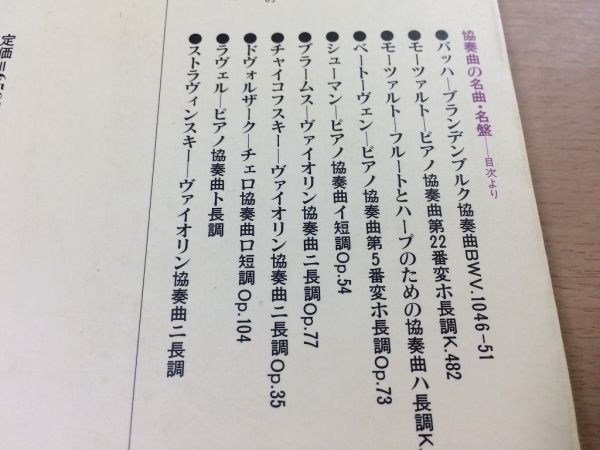 協奏曲の名曲・名盤──目次より
●バッハ─ブランデンブルク協奏曲BWV.1046-51
●モーツァルト─ピアノ協奏曲第22番変ホ長調K.482
●モーツァルト─フルートとハープのための協奏曲ハ長調K.
●ベートーヴェン─ピアノ協奏曲第5番変ホ長調Op.73
●シューマン─ピアノ協奏曲イ短調Op.54
●ブラームス─ヴァイオリン協奏曲ニ長調Op.77
●チャイコフスキー─ヴァイオリン協奏曲ニ長調Op.35
●ドヴォルザーク─チェロ協奏曲ロ短調Op.104
●ラヴェル─ピアノ協奏曲ト長調
●ストラヴィンスキー─ヴァイオリン協奏曲ニ長調
の
定価=